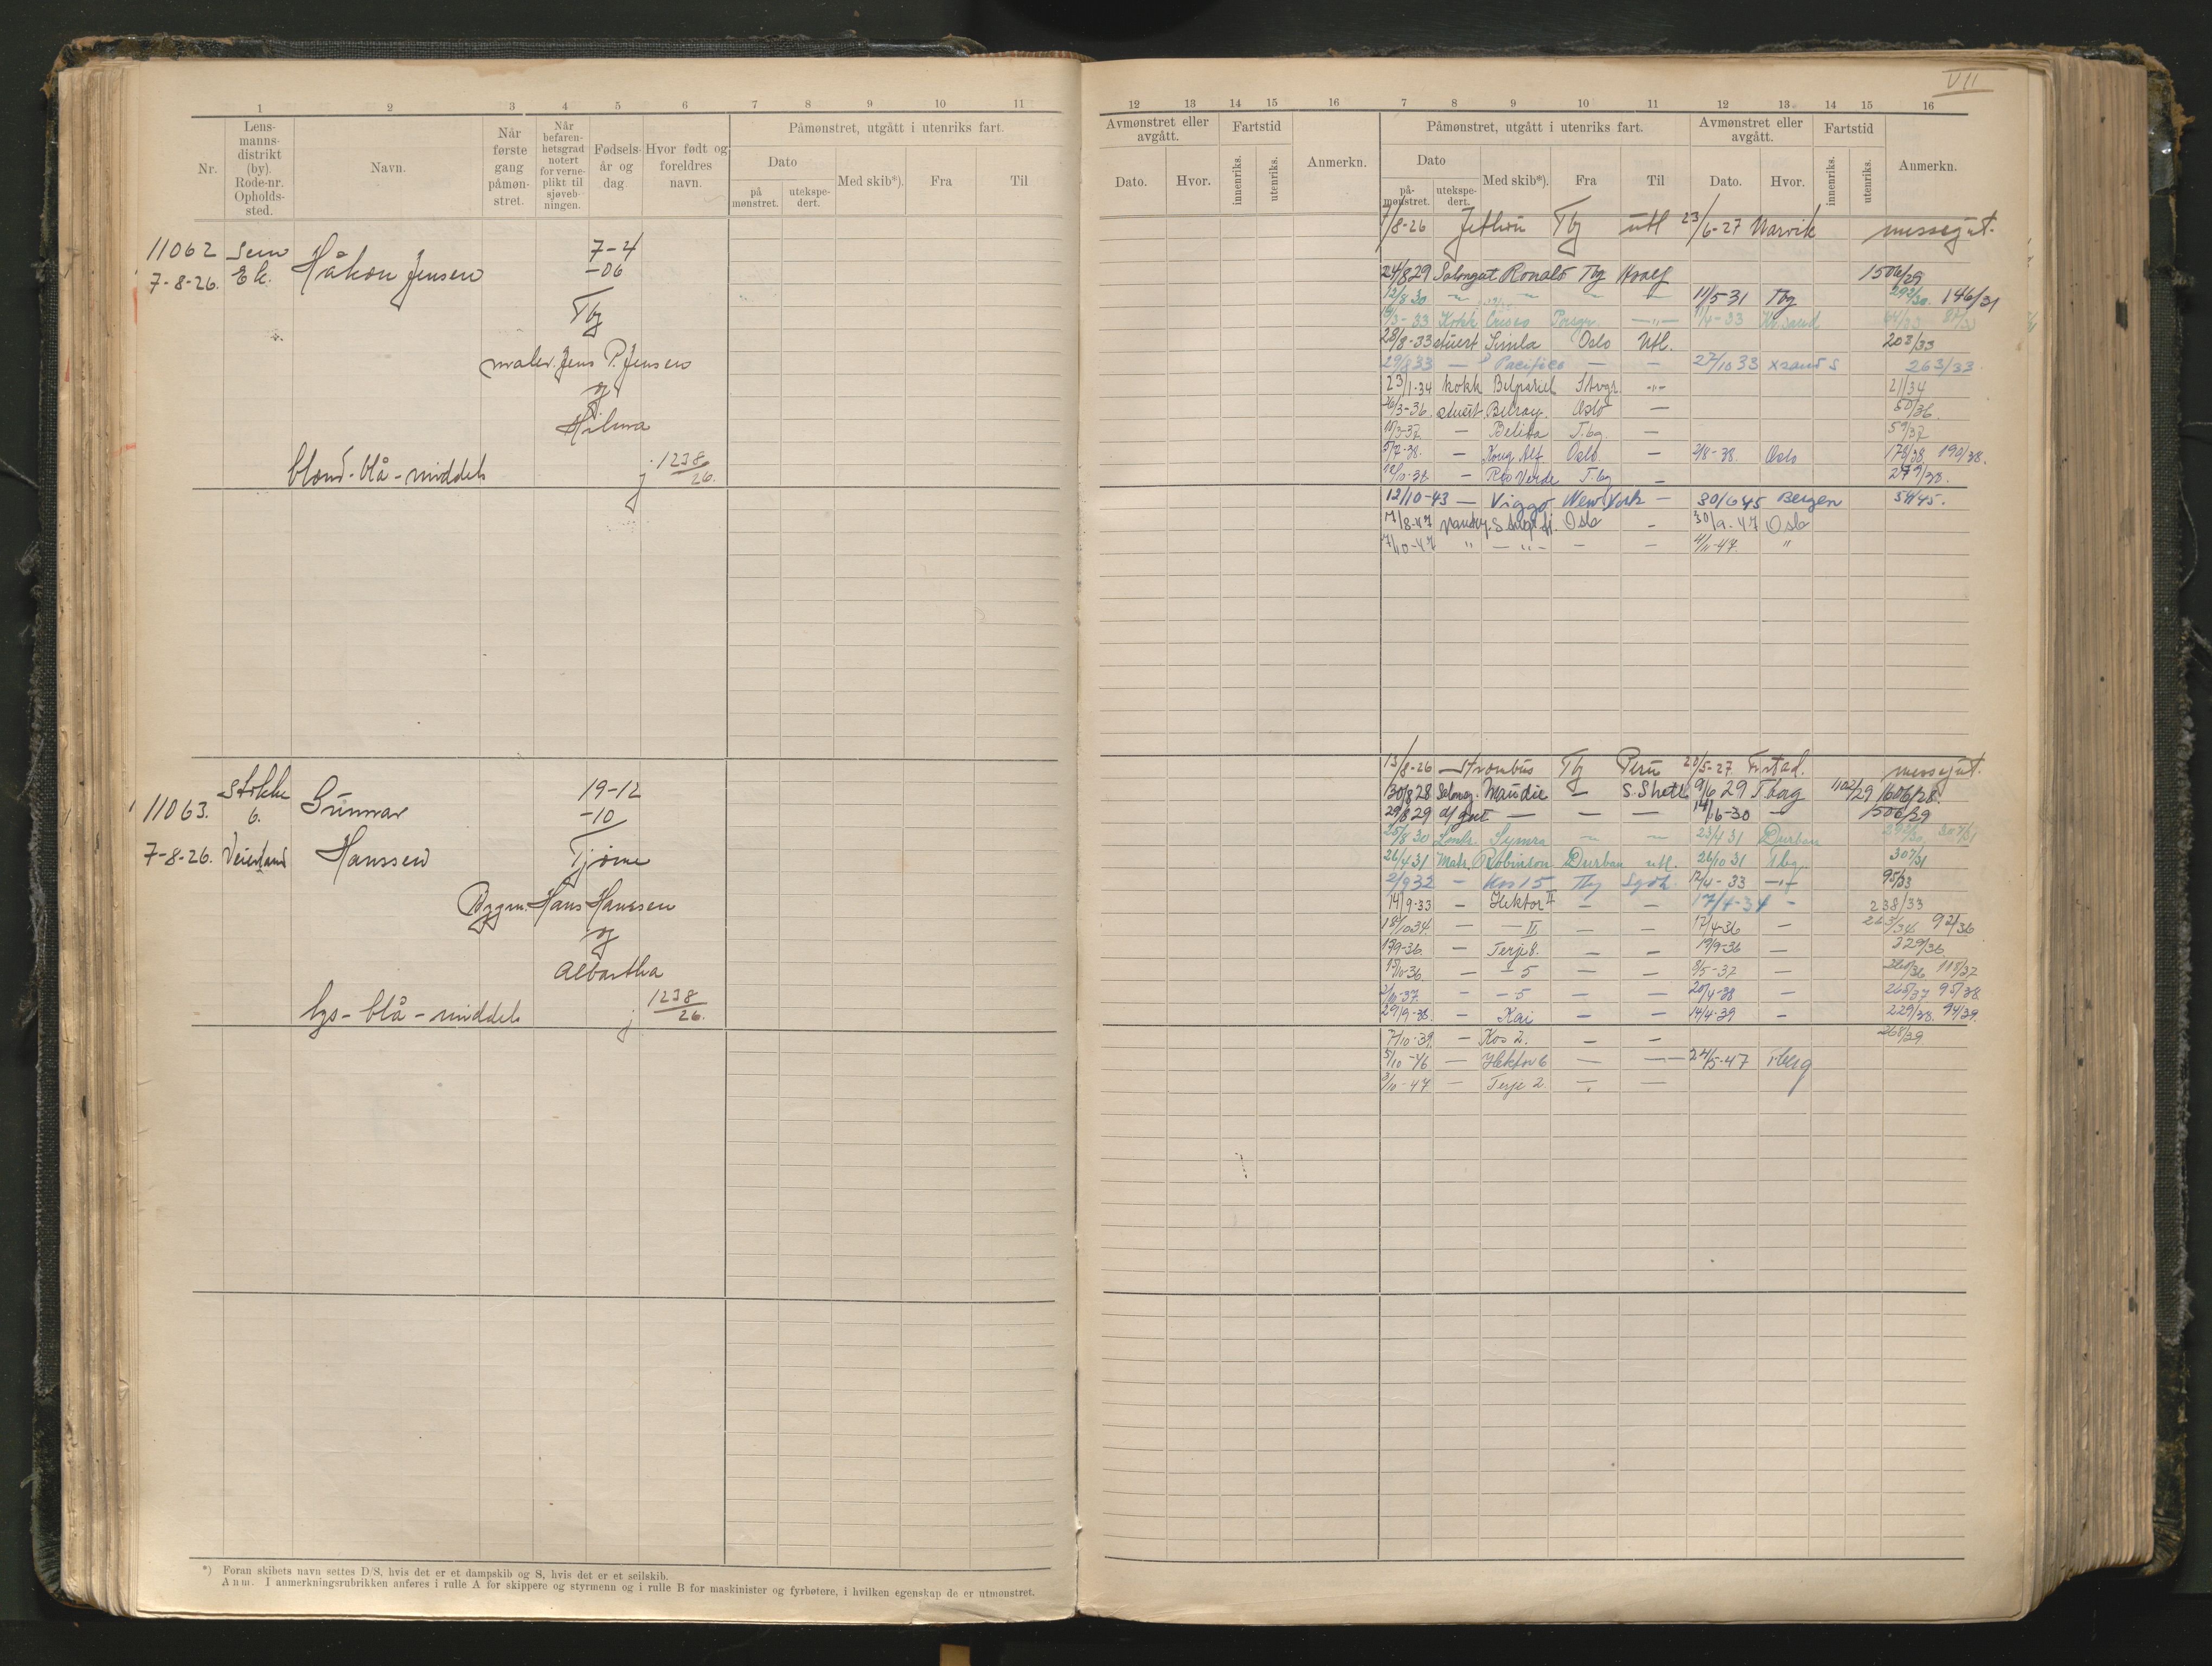 VII
1 2 3 4 5 6 7 8 9 10 11
Nr.
Lens-
manns-
distrikt
(by).
Rode-nr.
Opholds-
sted.
Navn.
Når
første
gang
påmøn-
stret.
Når
befaren-
hetsgrad
notert
for verne-
plikt til
sjøveb-
ningen.
Fødsels-
år og
dag.
Hvor født og
foreldres
navn.
Påmønstret, utgått i utenriks fart.
Dato
på
mønstret.
utekspe-
dert.
Med skib*).
Fra
Til
11062 Sem Håkon Jensen 7-4
7-8-26. Ek. -06
Tbg
maler. Jens P. Jensen
og
Hilma
blond-blå-middels j 1238/26.
11063. Stokke Gunnar 19-12
6. -10
7-8-26. Veierland Hanssen Tjøme
Byggm. Hans Hanssen
og
Albertha
lys-blå-middels j 1238/26.
*) Foran skibets navn settes D/S, hvis det er et dampskib og S, hvis det er et seilskib.
Anm. I anmerkningsrubrikken anføres i rulle A for skippere og styrmenn og i rulle B for maskinister og fyrbøtere, i hvilken egenskap de er utmønstret.
12 13 14 15 16 7 8 9 10 11 12 13 14 15 16
Avmønstret eller
avgått.
Dato.
Hvor.
Fartstid
innenriks.
utenriks.
Anmerkn.
Påmønstret, utgått i utenriks fart.
Dato
på-
mønstret.
utekspe-
dert.
Med skib*).
Fra
Til
Avmønstret eller
avgått.
Dato.
Hvor.
Fartstid
innenriks.
utenriks.
Anmerkn.
7/8-26 Tbg utl 23/6-27 Narvik messegut.
24/8 29 Salongut Ronald Tbg Hvalf 1506/29
12/8 30 - - - - 11/5 31 Tbg 292/30. 146/31
-33 Kokk Porsgr. -"- 1/4-33 Kr.sand
28/8-33 stuert Simla Oslo Utl. 208/33
29/8 33 - Pacifico - - 27/10 33 Xsand S 263/33
23/1-34 kokk Belpareil Stvgr. -"- 21/34
26/3-36. stuert Belray. Oslo - 50/36.
15/3-37 - Belita T.bg - 59/37
5/7-38. - Kong Alf Oslo. - 2/8-38. Oslo 178/38. 190/38.
12/10-38 - Rio Verde T.bg - 279/38.
12/10-43 - Viggo New York - 30/6 45 Bergen 54/45.
7/8-47 Oslo - 30/9-47 Oslo
7/10-47 " - " - - - 4/11-47. "
13/8-26 Strombus Tbg Peru 20/5-27 Fr.stad. messegut.
30/8 28 Salong. Maudie - S. Shetl. 9/6 29 Tbarg 1102/29 1606/28.
29/8 29 d/gut - - - 14/6-30 - 1506/29
25/8 30 Symra - - 23/4 31 Durban 292/30. 307/31
26/4 31 Matr. Robinson Durban utl. 26/10 31 Tbg. 307/31
2/9 32 - Kos 15 Tbg Syds. 12/4-33 -"- 95/33
14/9-33 - Hektor II - - 17/4-34 - 238/33
18/10 34. - - II - - 17/4-36 - 263/34. 92/36
17/9-36. - Terje 8. - - 19/9-36 - 229/36
15/10-36. - - 5 - - 8/5-37 - 260/36 118/37
2/10-37. - - 5 - - 20/4-38 - 265/37 95/38
29/9-38. - Kai - - 14/4-39 - 229/38. 94/39.
7/10-39. - Kos 2. - - 268/39
5/10-46 - Hektor 6 - - 24/5-47 T.berg
3/10-47 - Terje 2. - -